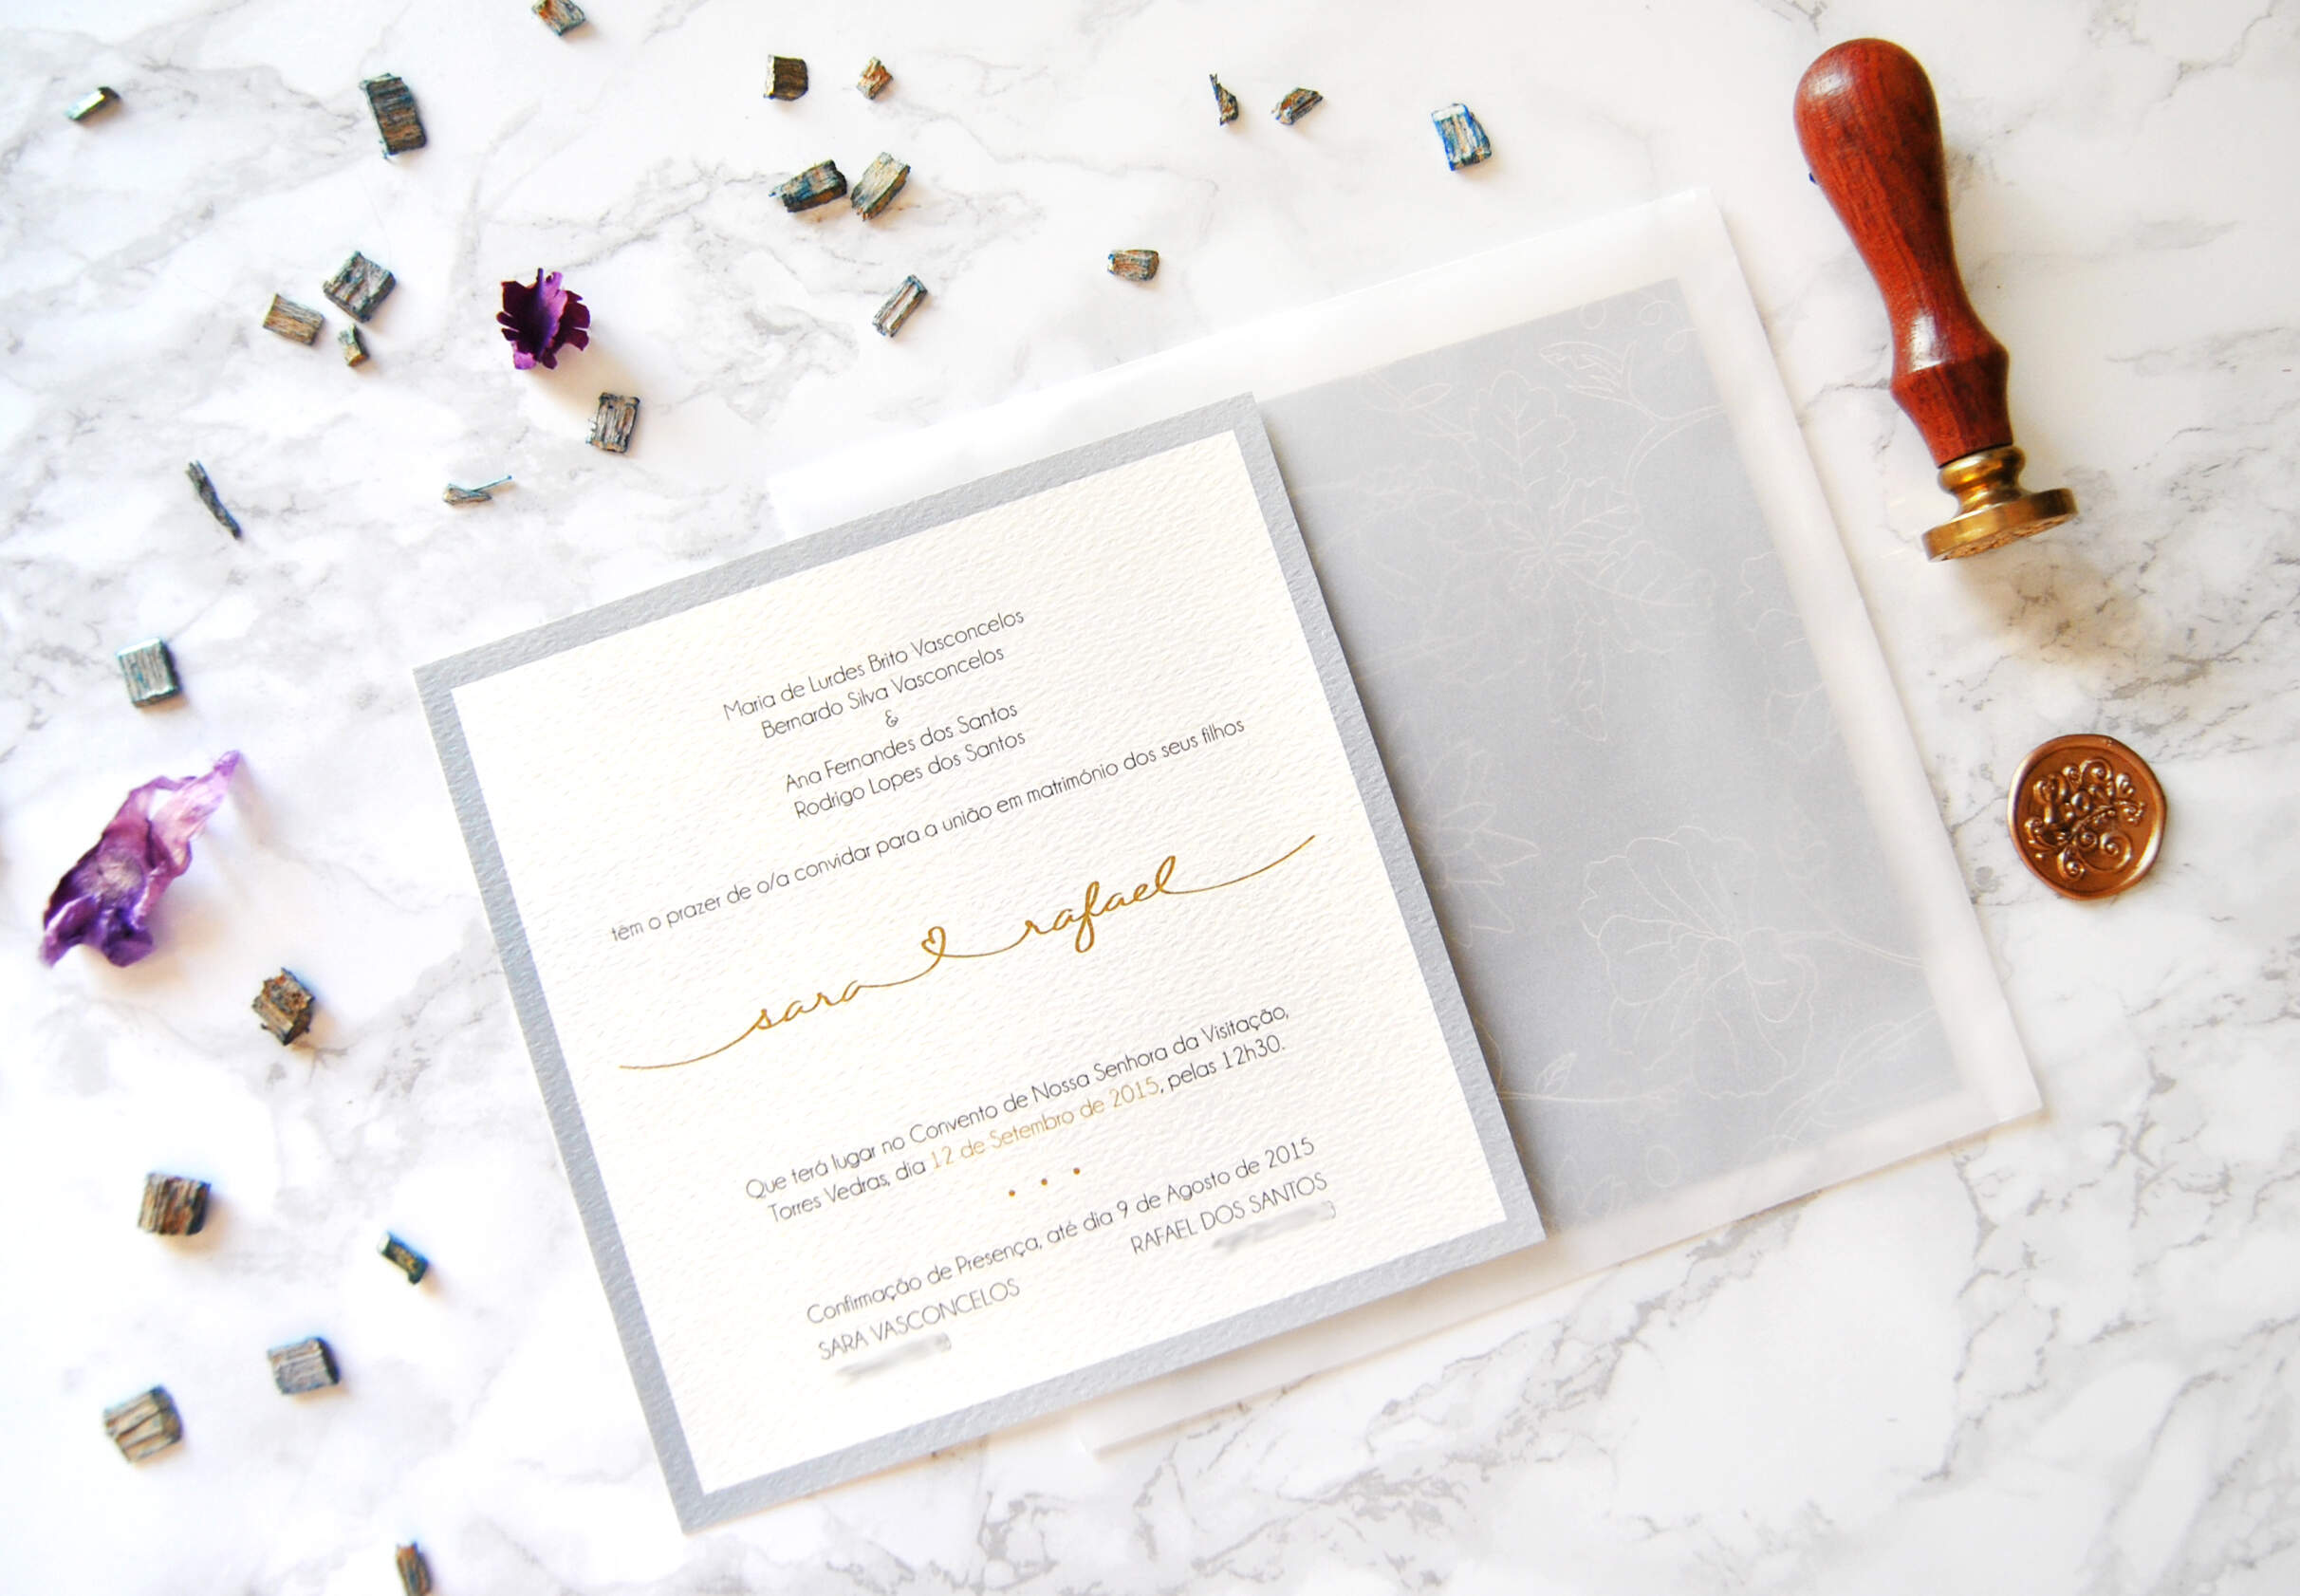 Maria de Lurdes Brito Vasconcelos
Bernardo Silva Vasconcelos
&
Ana Fernandes dos Santos
Rodrigo Lopes dos Santos
têm o prazer de o/a convidar para a união em matrimónio dos seus filhos
sara rafael
Que terá lugar no Convento de Nossa Senhora da Visitação,
Torres Vedras, dia 12 de Setembro de 2015, pelas 12h30.
Confirmação de Presença, até dia 9 de Agosto de 2015
SARA VASCONCELOS RAFAEL DOS SANTOS